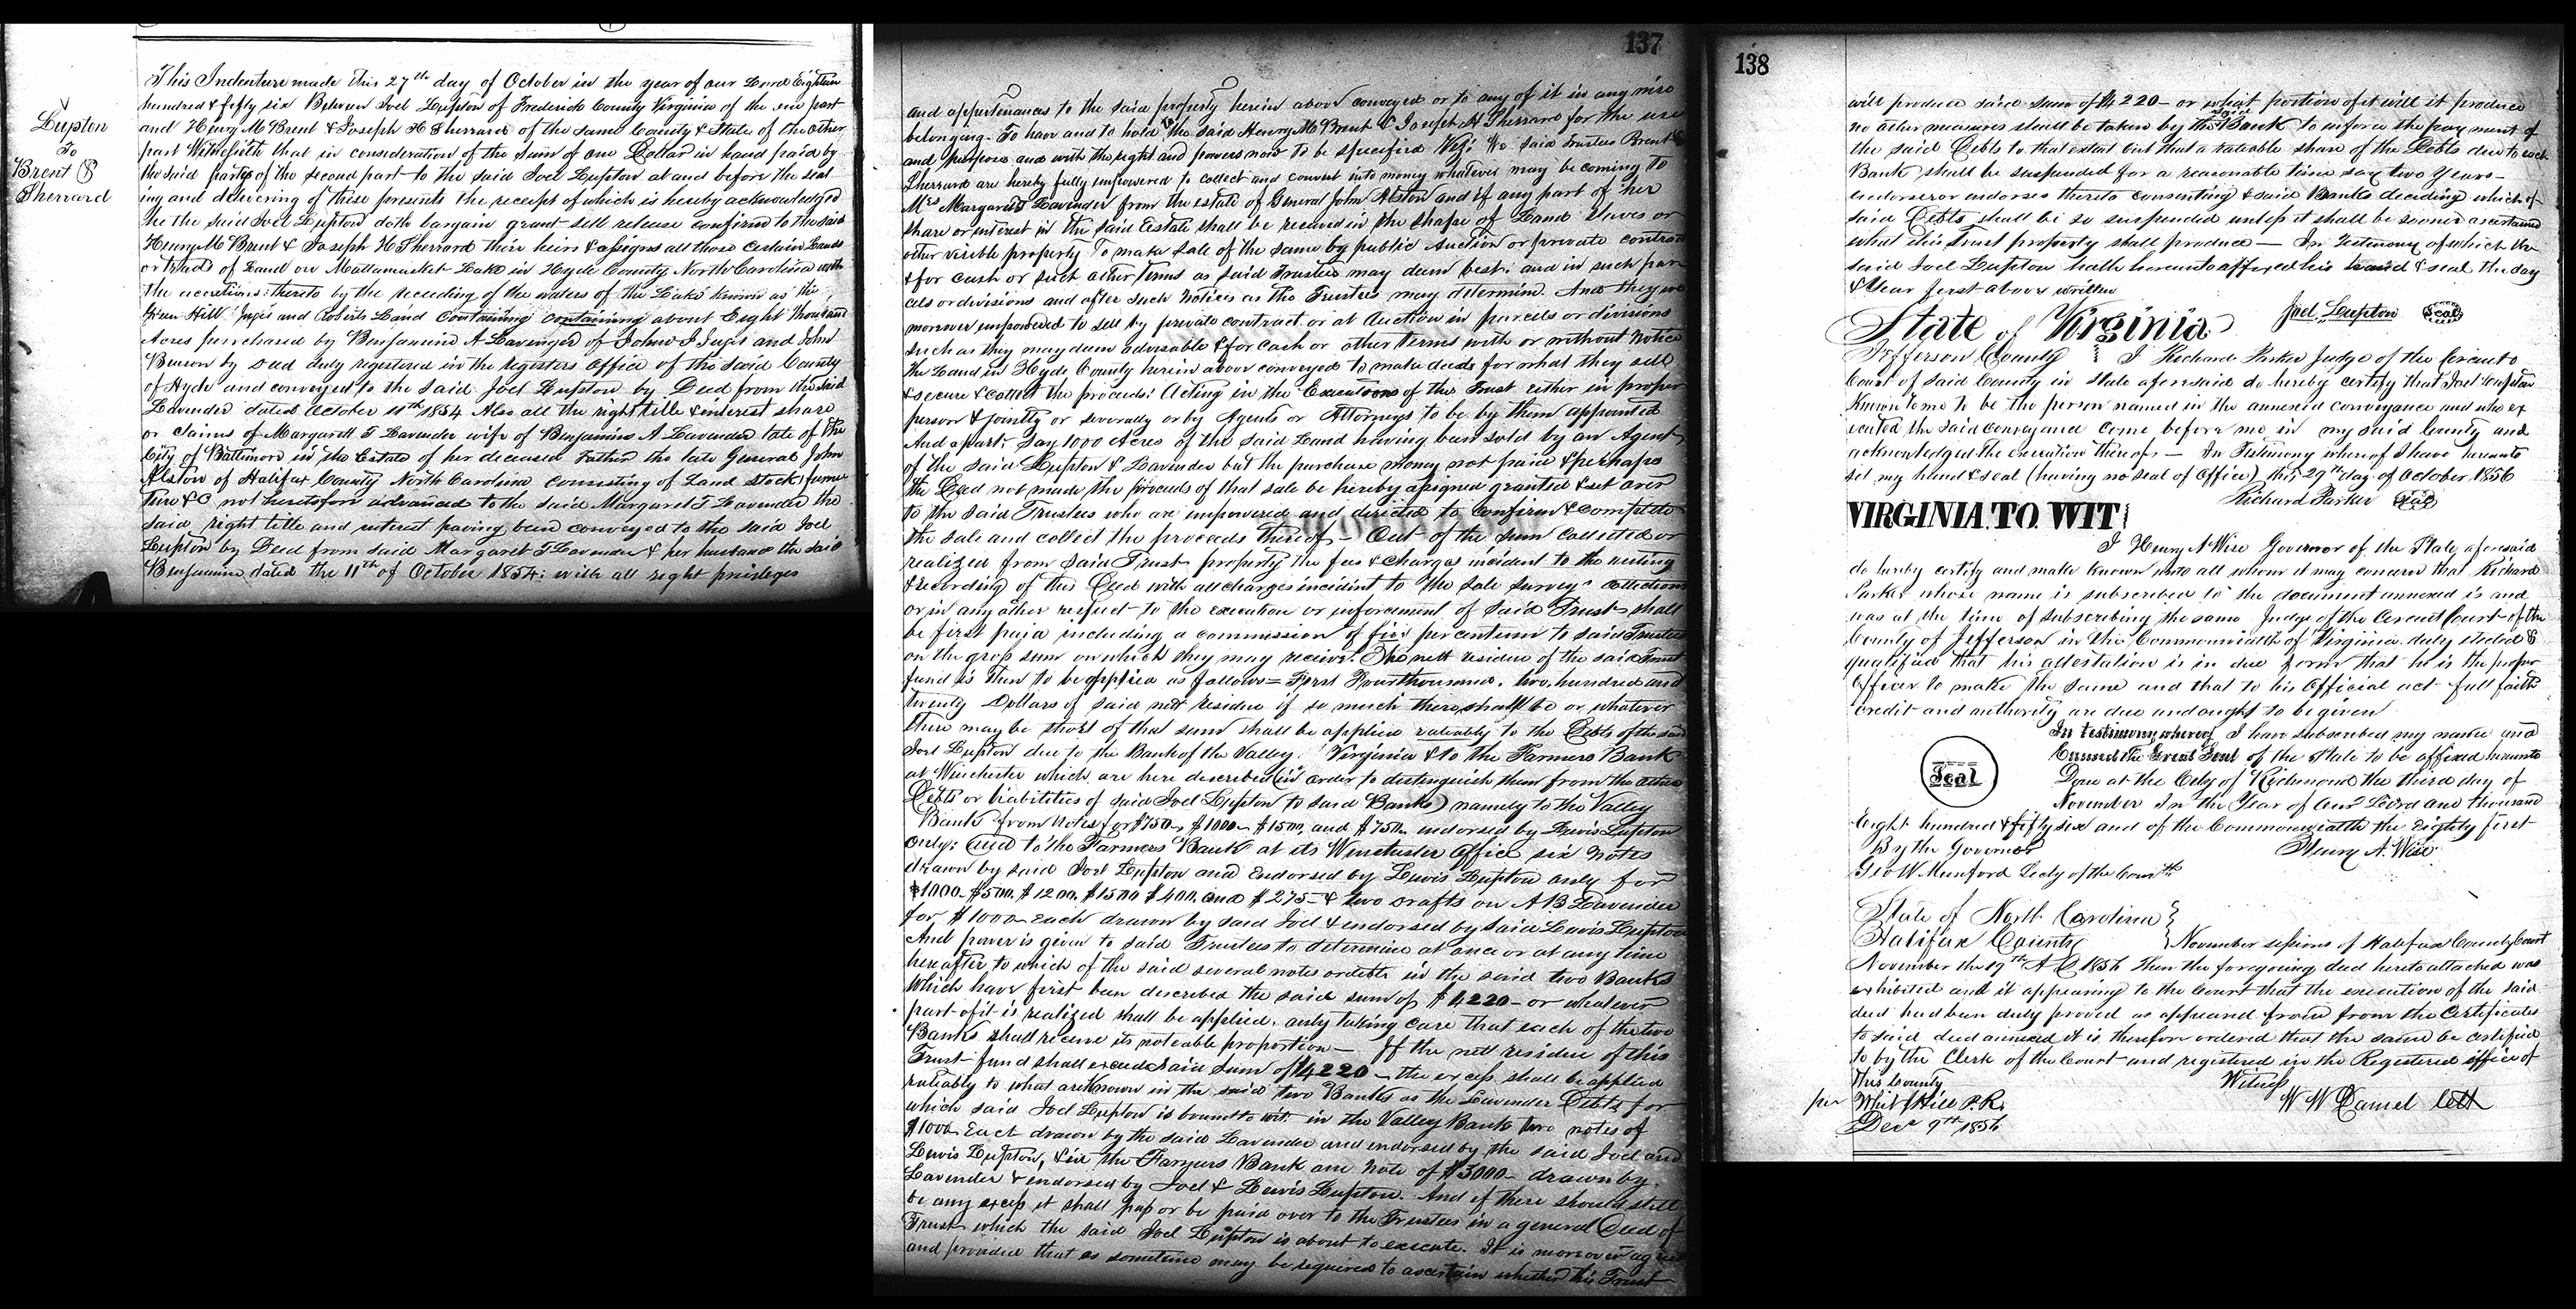 Lupton
To
Brent &
Sherrard
This Indenture made this 27th day of October in the year of our Lord Eighteen
hundred & fifty six Between Joel Lupton of Frederick County Virginia of the one part
and Henry M Brent & Joseph H Sherrard of the same County & State of the other
part Witnesseth that in consideration of the sum of one Dollar in hand paid by
the said partys of the second part to the said Joel Lupton at and before the seal
ing and delivering of these presents the receipt of which is hereby acknowledged
he the said Joel Lupton doth bargain grant sell release confirm to the said
Henry M Brent & Joseph H Sherrard their heirs & assigns all those certain Lands
or tracts of Land on Mattamusket Lake in Hyde County North Carolina with
the accretions thereto by the receeding of the waters of the Lake known as the
Green Hill and Roberts Land containing containing about Eight thousand
Acres purchased by Benjamin A Lavender of John I and John
by Deed duly registered in the registers Office of the said County
of Hyde and conveyed to the said Joel Lupton by Deed from the said
Lavender dated October 11th 1854 Also all the right title & interest share
or claims of Margarett T Lavender wife of Benjamin A Lavender late of the
City of Baltimore in the Estate of her deceased Father the late General John
Alston of Halifax County North Carolina consisting of Land stock furni
ture &C not heretofore advanced to the said Margaret T Lavender the
said right title and interest having been conveyed to the said Joel
Lupton by Deed from said Margaret T Lavender & her husband the said
Benjamin dated the 11th of October 1854: with all right privileges
137
and appurtenances to the said property herein above conveyed or to any of it in any wise
belonging. To have and to hold to the said Henry M Brent & Joseph H Sherrard for the use
and purpose and with the right and powers now to be specified Viz: The said Trustees Brent &
Sherrard are hereby fully empowered to collect and convert into money whatever may be coming to
Mrs Margaret T Lavender from the estate of General John Alston and if any part of her
share or interest in the said Estate shall be received in the shape of Land Slaves or
other visible property To make sale of the same by public Auction or private contract
& for cash or such other terms as said Trustees may deem best: and in such par
cels or divisions and after such notices as the Trustees may determine. And they are
moreover empowered to sell by private contract or at Auction in parcels or divisions
such as they may deem advisable & for cash or other terms with or without notice
the Land in Hyde County herein above conveyed to make deeds for what they sell
& secure & collect the proceeds: Acting in the Executions of the Trust either in proper
person & jointly or severally or by Agents or Attorneys to be by them appointed
And a part: say 1000 Acres of the said Land having been sold by an Agent
of the said Lupton & Lavender but the purchase money not paid & perhaps
the Deed not made the proceeds of that sale be hereby assigned granted & set over
to the said Trustees who are empowered and directed to confirm & complete
the sale and collect the proceeds thereof — Out of the sum collected or
realized from said Trust property the fees & charges incident to the writing
& recording of this Deed with all charges incident to the sale surveys collections
or in any other respect to the execution or inforcement of said Trust shall
be first paid including a commission of five per centum to said Trustees
on the gross sum on which they may receive. The nett residue of the said Trust
fund is then to be applied as follows= First Four thousand, two hundred and
twenty Dollars of said nett residue if so much there shall be or whatever
there may be short of that sum shall be applied ratably to the Debts of the said
Joel Lupton due to the Bank of the Valley Virginia & to the Farmers Bank
at Winchester which are here described (in order to distinguish them from the other
Debts or liabilities of said Joel Lupton to said Banks) namely to the Valley
Bank from Notes for $750, $1000 $1500, and $750. endorsed by Lewis Lupton
only: And to the Farmers Bank at its Winchester Office six notes
drawn by said Joel Lupton and Endorsed by Lewis Lupton only for
$1000. $500. $1200. $1500 $400. and $275— & two drafts on A B Lavender
for $1000 Each drawn by said Joel & endorsed by said Lewis Lupton
And power is given to said Trustees to determine at once or at any time
hereafter to which of the said several notes or debts in the said two Banks
which have first been described the said sum of $4220— or whatever
part of it is realized shall be applied, only taking care that each of the two
Banks shall receive its rateable proportion— If the nett residue of this
Trust fund shall exceed said Sum of $4220— the excess shall be applied
ratiably to what are known in the said two Banks as the Lavender Debts for
which said Joel Lupton is bound to wit: in the Valley Bank two notes of
$1000 Each drawn by the said Lavender and endorsed by the said Joel and
Lewis Lupton, & in the Farmers Bank one Note of $3000— drawn by
Lavender & endorsed by Joel & Lewis Lupton. And if there should still
be any excess it shall pass or be paid over to the Trustees in a general Deed of
Trust which the said Joel Lupton is about to execute. It is moreover agreed
and provided that as sometime may be required to ascertain whether this Trust
138
will produce said sum of $4220— or what portion of it will it produce
no other measures shall be taken by the said Bank to inforce the payment of
the said Debts to that extent but that a ratable share of the Debts due to each
Bank shall be suspended for a reasonable time say two Years—
endorser or endorses thereto consenting & said Banks deciding which of
said Debts shall be so suspended unless it shall be sooner ascertained
what this Trust property shall produce — In Testimony of which the
said Joel Lupton hath hereunto affixed his hand & seal the day
& Year first above written
Joel Lupton Seal
State of Virginia
Jefferson County I Richard Parker Judge of the Circuit
Court of said County in State aforesaid do hereby certify that Joel Lupton
Known to me to be the person named in the annexed conveyance and who ex
ecuted the said conveyance come before me in my said County and
acknowledged the execution thereof — In Testimony whereof I have hereunto
set my hand & seal (having no seal of Office) this 29th day of October 1856
Richard Parker Seal
VIRGINIA TO WIT
I Henry A Wise Governor of the State aforesaid
do hereby certify and make known unto all whom it may concern that Richard
Parker whose name is subscribed to the document annexed is and
was at the time of subscribing the same Judge of the Circuit Court of the
County of Jefferson in the Commonwealth of Virginia duly elected &
qualified that his attestation is in due form that he is the proper
Officer to make the same and that to his Official act full faith
credit and authority are due and ought to be given
In testimony whereof I have subscribed my name and
Caused the Great Seal of the State to be affixed hereunto
Seal
Done at the City of Richmond the third day of
November In the Year of Our Lord one thousand
Eight hundred & fifty six and of the Commonwealth the Eighty first
By the Governor
Henry A. Wise
Geo W Munford Secty of the Comth
State of North Carolina
Halifax County November sessions of Halifax County Court
November the 19th A D 1856 Then the foregoing deed hereto attached was
exhibited and it appearing to the Court that the execution of the said
deed had been duly proved as appeared from from the Certificates
to said deed annexed it is therefore ordered that the same be certified
to by the Clerk of the Court and registered in the Registered office of
this County
Witness
per Whit Hill P. R.
W W Daniel Clk
Decr 9th 1856